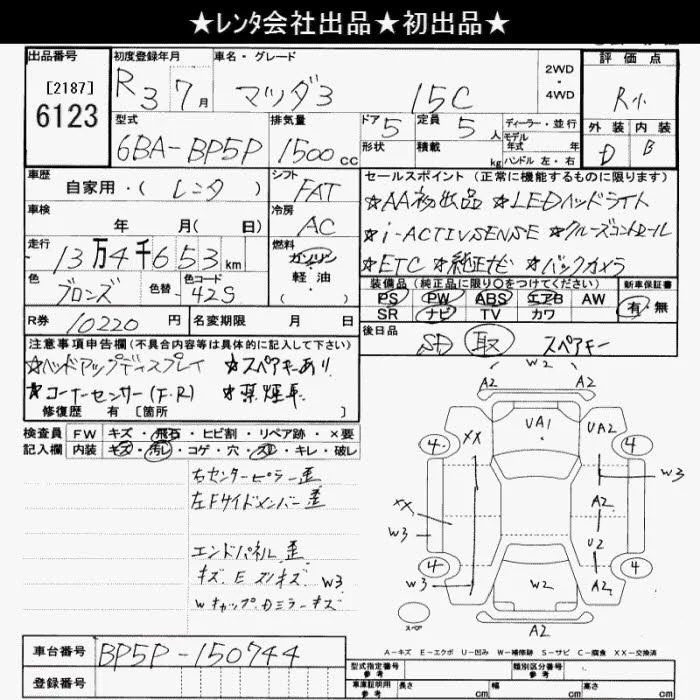 ★レンタ会社出品★初出品★
出品番号 [2187] 6123
初度登録年月 R3 7月
車名・グレード マツダ3 15C
2WD・4WD
評価点 R小
外装 D 内装 B
型式 6BA-BP5P
排気量 1500cc
ドア 5 形状
定員 5人 積載 kg
ディーラー・並行
モデル年式 年
ハンドル 左・右
車歴 自家用・(レンタ)
シフト FAT
車検 年 月(日)
冷房 AC
走行 13万4千653km
燃料 ガソリン・軽油・( )
色 ブロンズ 色替 色コード 42S
R券 10220円 名変期限 月 日
セールスポイント(正常に機能するものに限ります)
★AA初出品 ★LEDヘッドライト
★i-ACTIVSENSE ★クルーズコントロール
★ETC ★純正ナビ ★バックカメラ
装備品(純正品に限り○をつけてください) 新車保証書
PS PW ABS エアB AW 有・無
SR ナビ TV カワ
後日品 SD 取 スペアキー
注意事項申告欄(不具合内容等は具体的に記入して下さい)
★ヘッドアップディスプレイ ★スペアキーあり
★コーナーセンサー(F・R) ★禁煙車
修復歴 有[箇所 ]
検査員記入欄 FW キズ・飛石・ヒビ割・リペア跡・×要
内装 キズ・汚レ・コゲ・穴・スレ・キレ・破レ
右センターピラー歪
左Fサイドメンバー歪
エンドパネル歪
キズ E スリキズ W3
Wキャップ.Dミラーキズ
W2
A2 A2
4 XX UA1 UA2 4
W3
XX A2
W3 U2
4 W3 W2 A2 4
スペア A2
A-キズ E-エクボ U-凹み W-補修跡 S-サビ C-腐食 XX-交換済
車台番号 BP5P-150744
登録番号
型式指定番号 参考 類別区分番号 参考
車庫証明用 参考 長さ cm 幅 cm 高さ cm